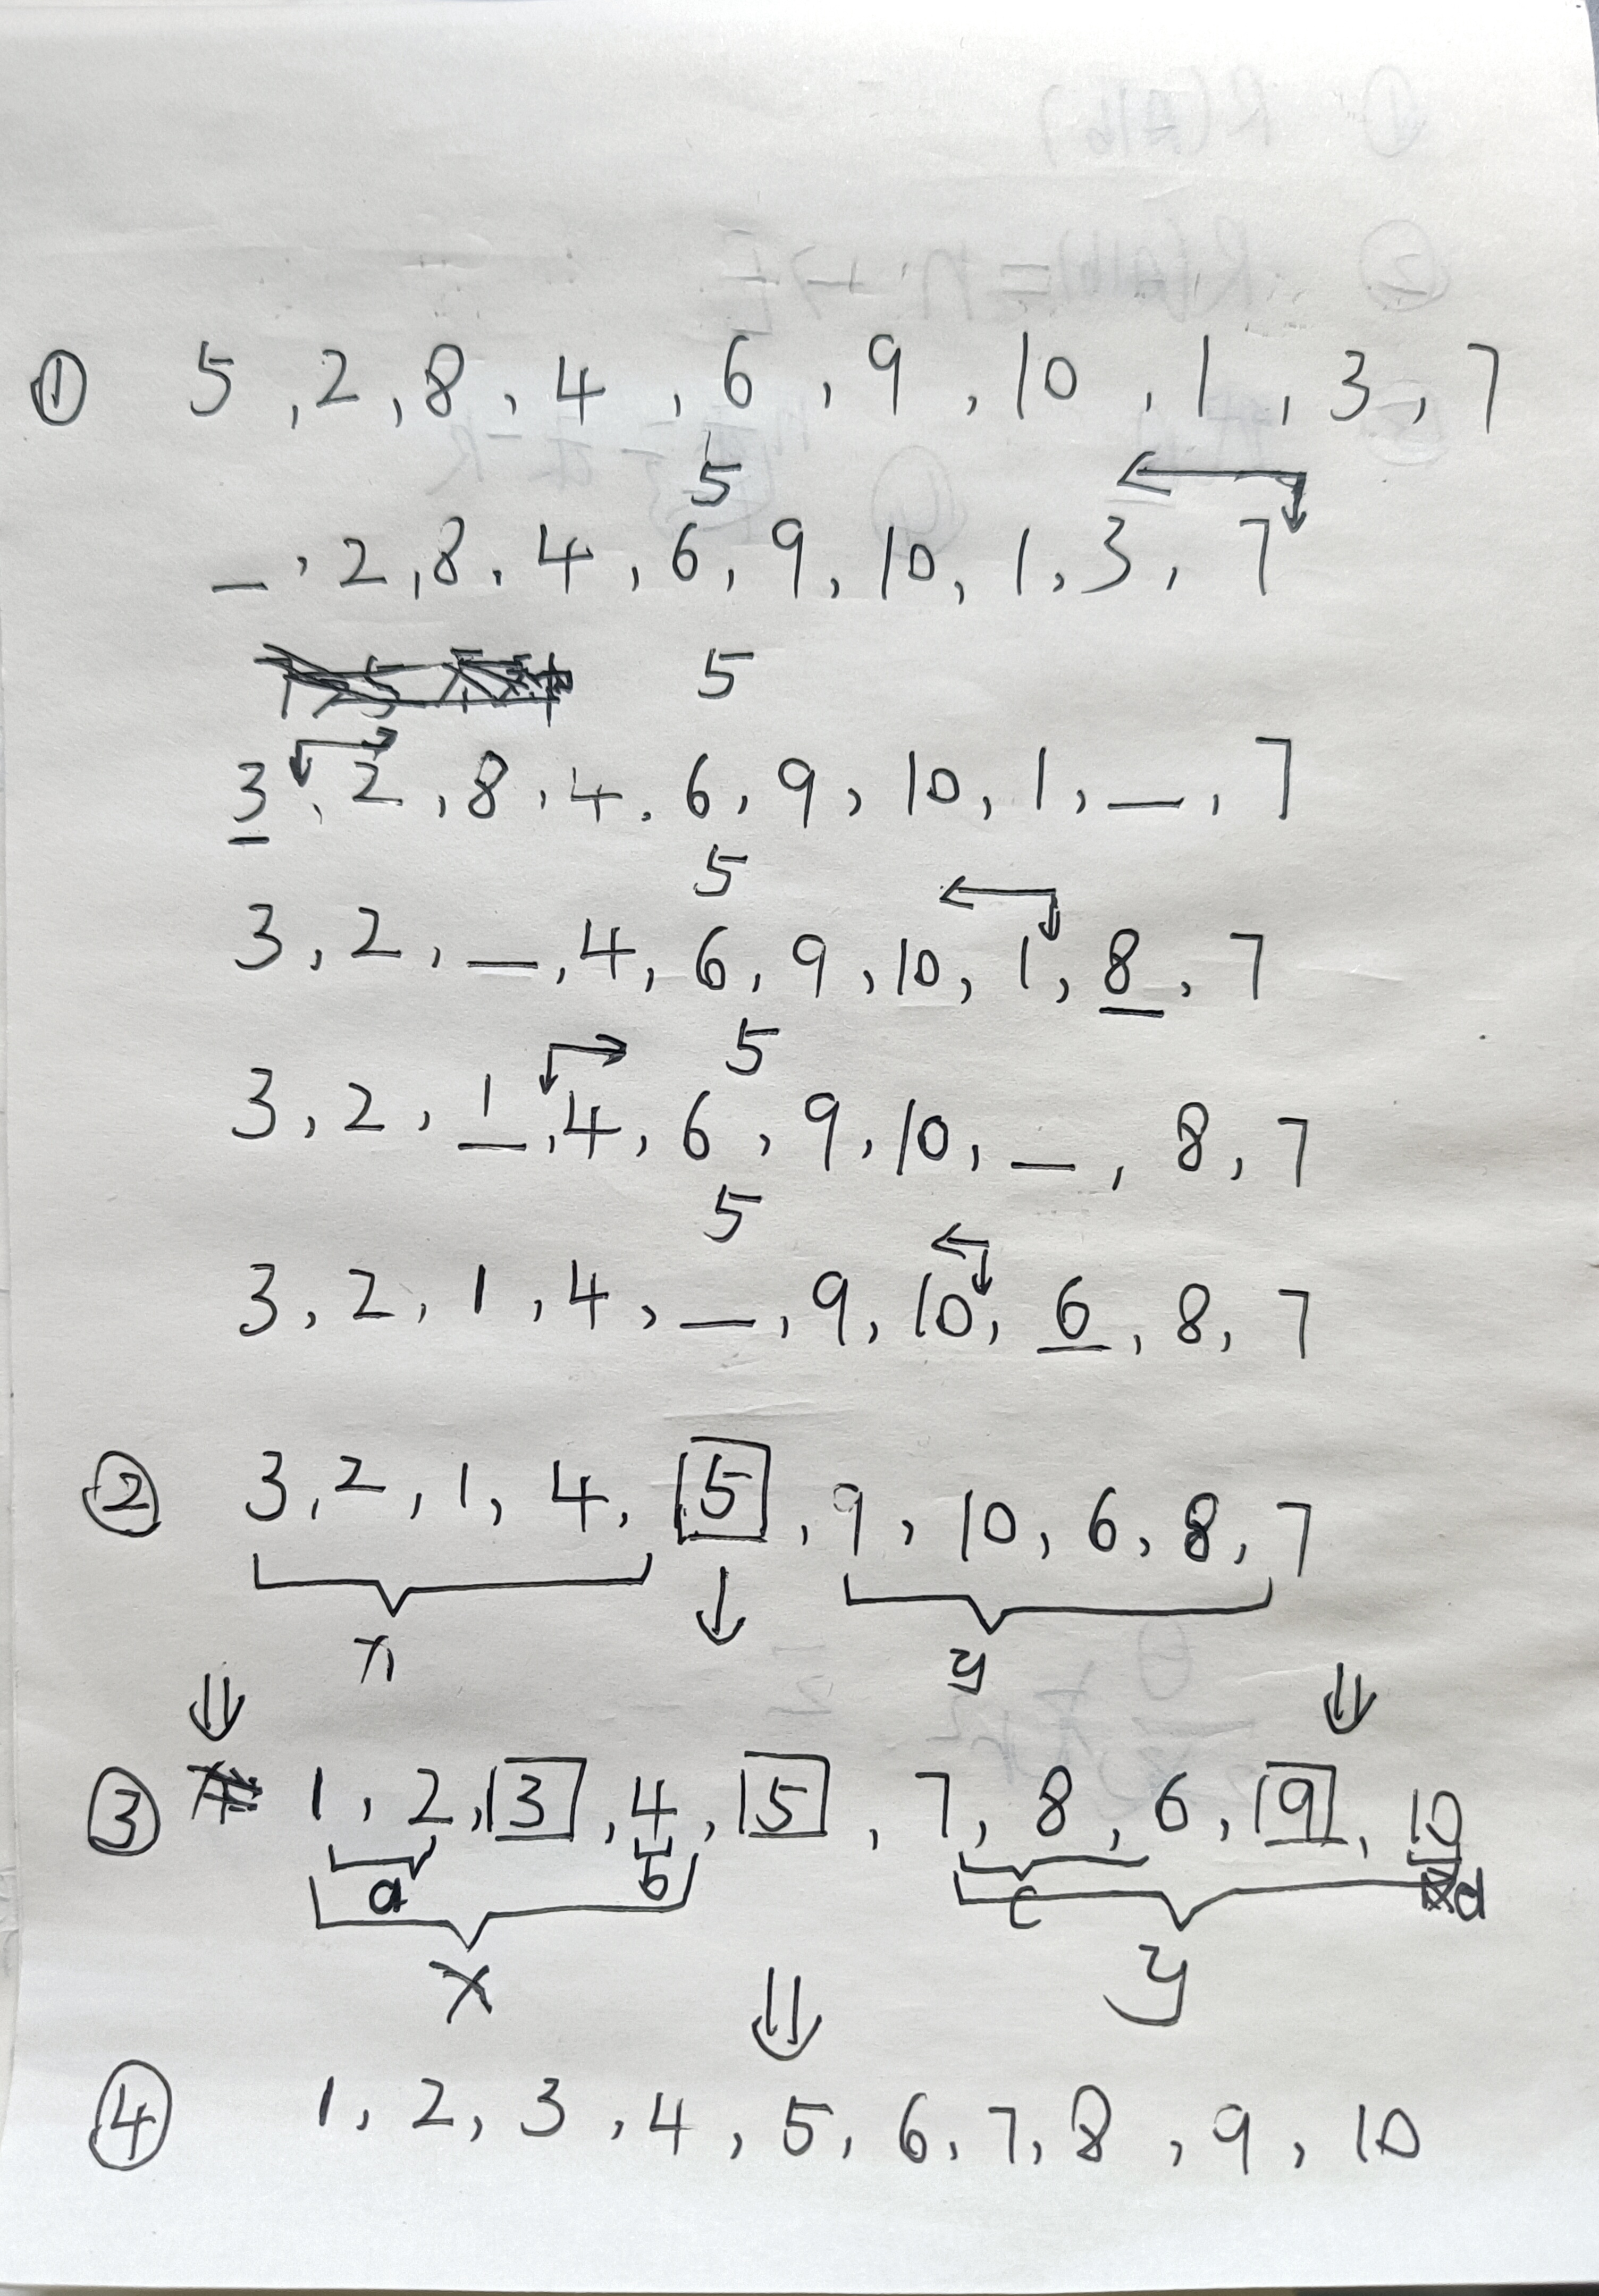 ① 5, 2, 8, 4, 6, 9, 10, 1, 3, 7
5
_, 2, 8, 4, 6, 9, 10, 1, 3, 7
5
3, 2, 8, 4, 6, 9, 10, 1, _, 7
5
3, 2, _, 4, 6, 9, 10, 1, 8, 7
5
3, 2, 1, 4, 6, 9, 10, _, 8, 7
5
3, 2, 1, 4, _, 9, 10, 6, 8, 7
② 3, 2, 1, 4, 5, 9, 10, 6, 8, 7
x y
③ 1, 2, 3, 4, 5, 7, 8, 6, 9, 10
a b c d
x y
④ 1, 2, 3, 4, 5, 6, 7, 8, 9, 10